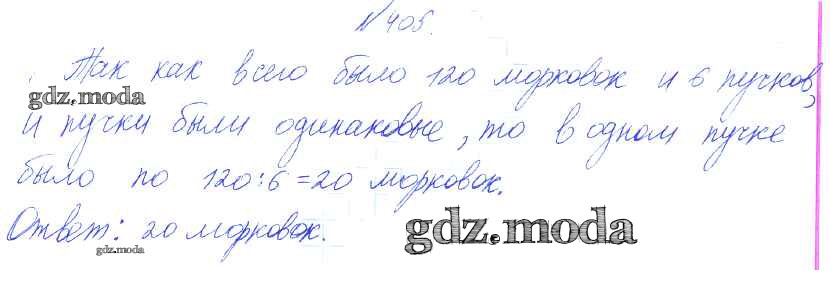 №405.
Так как всего было 120 морковок и 6 пучков,
gdz.moda
и пучки были одинаковые, то в одном пучке
было по 120:6=20 морковок.
Ответ: 20 морковок.
gdz.moda
gdz.moda